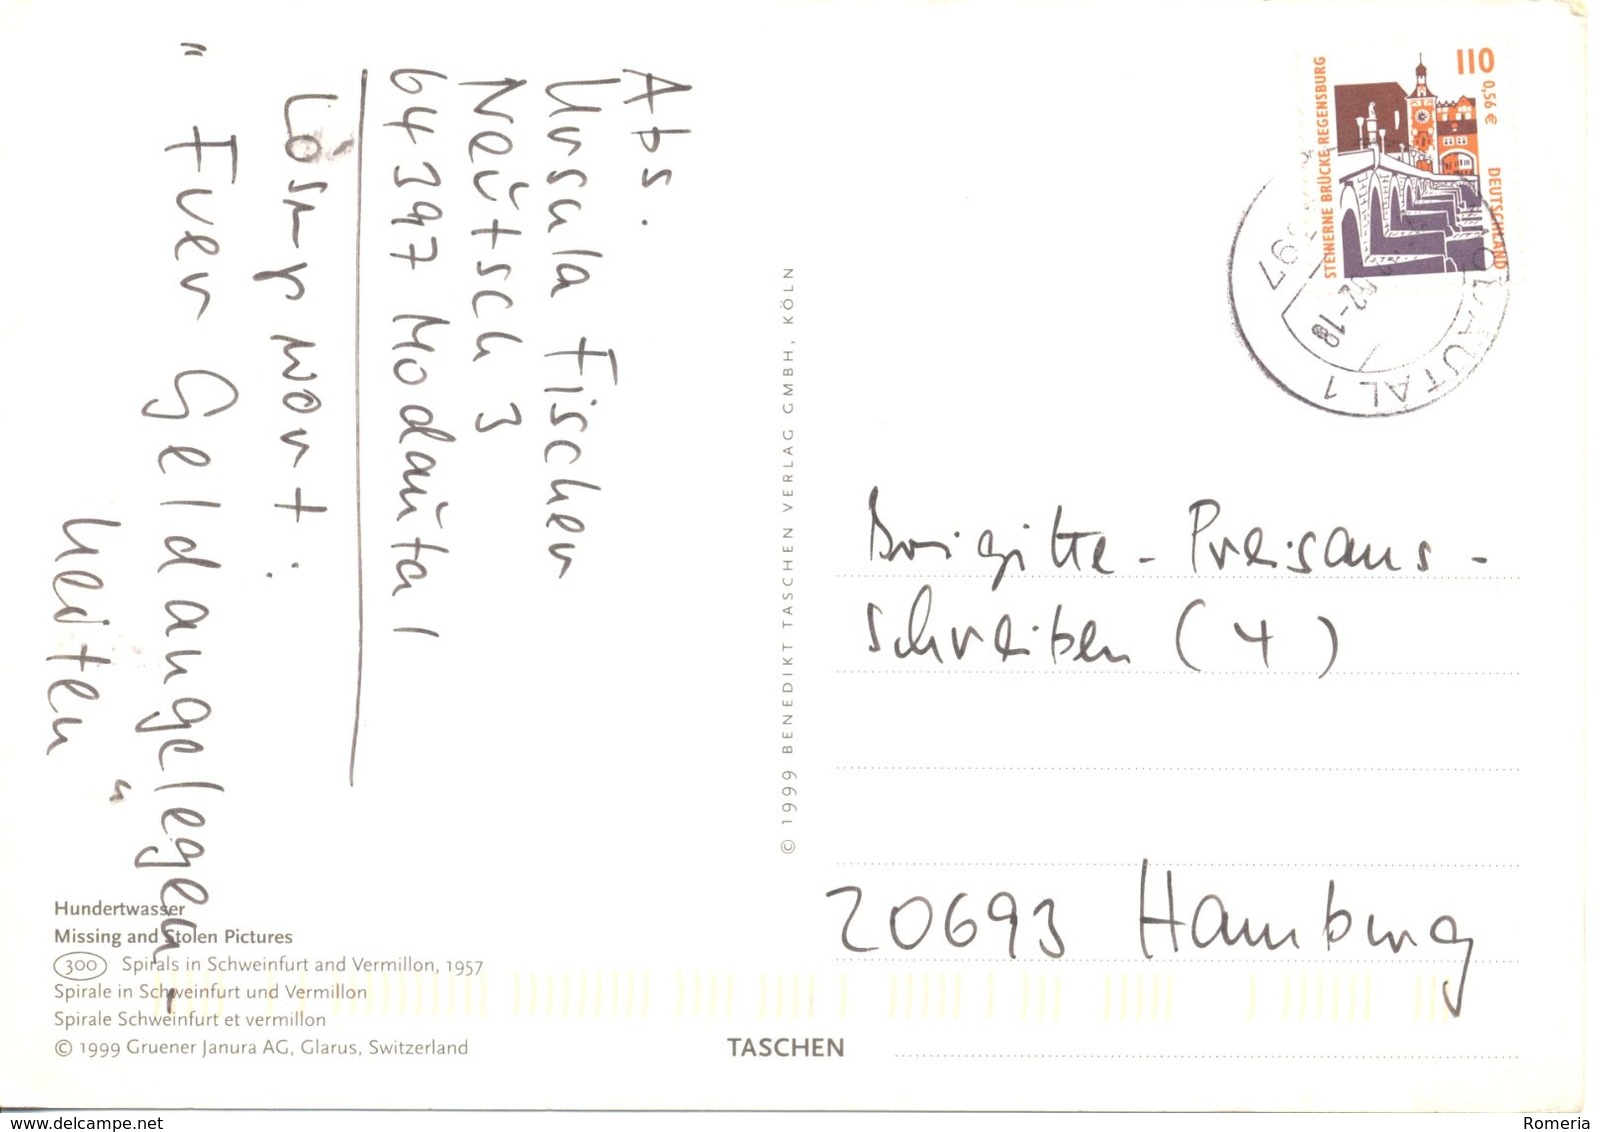 Abs.
Ursula Fischer
Neutsch 3
64397 Modautal
Lösungswort:
" Fuer Geldangelegen-
heiten "
Hundertwasser
Missing and Stolen Pictures
300 Spirals in Schweinfurt and Vermillon, 1957
Spirale in Schweinfurt und Vermillon
Spirale Schweinfurt et vermillon
© 1999 Gruener Janura AG, Glarus, Switzerland
© 1999 BENEDIKT TASCHEN VERLAG GMBH, KÖLN
TASCHEN
110 0,56 €
DEUTSCHLAND
STEINERNE BRÜCKE REGENSBURG
MODAUTAL 1
02-18
Brigitte-Preisaus-
schreiben (4)
20693 Hamburg
delcampe.net
Romeria